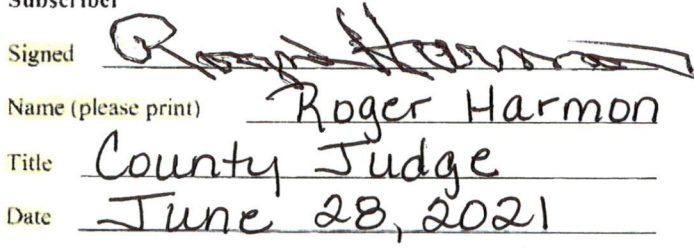 Subscriber
Signed Roger Harmon
Name (please print) Roger Harmon
Title County Judge
Date June 28, 2021